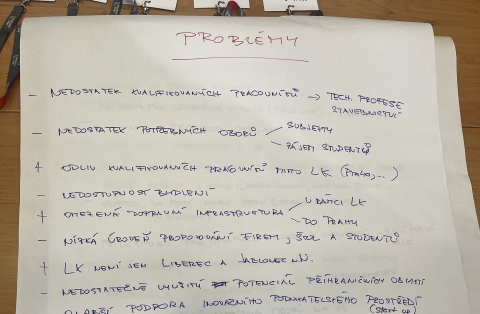 PROBLÉMY
- NEDOSTATEK KVALIFIKOVANÝCH PRACOVNÍKŮ → TECH. PROFESE
STAVEBNICTVÍ
- NEDOSTATEK POTŘEBNÝCH OBORŮ SUBJEKTY
ZÁJEM STUDENTŮ
+ ODLIV KVALIFIKOVANÝCH PRACOVNÍKŮ MIMO LK (PRAHA,...)
- NEDOSTUPNOST BYDLENÍ
+ OMEZENÁ DOPRAVNÍ INFRASTRUKTURA V RÁMCI LK
DO PRAHY
- NÍZKÁ ÚROVEŇ PROPOJOVÁNÍ FIREM, ŠKOL A STUDENTŮ
+ LK NENÍ JEN LIBEREC A JABLONEC N.N.
- NEDOSTATEČNĚ VYUŽITÝ POTENCIÁL PŘÍHRANIČNÍCH OBLASTÍ
SLABŠÍ PODPORA INOVAČNÍHO PODNIKATELSKÉHO PROSTŘEDÍ
(START UP)